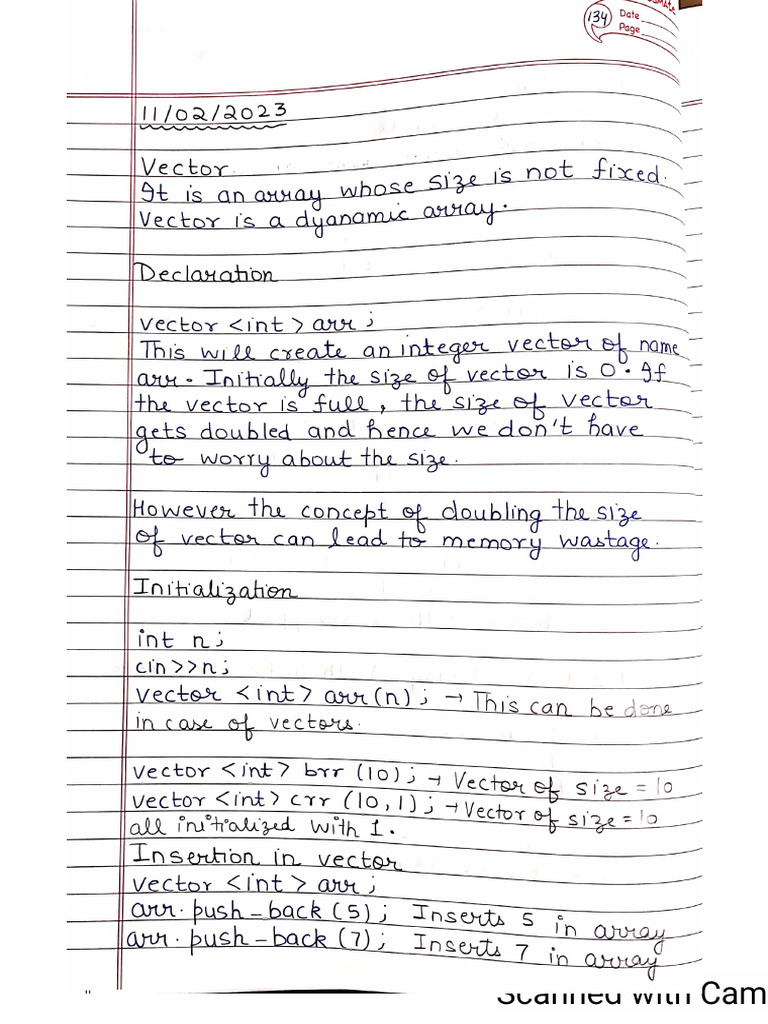 134
Date
Page
11/02/2023
Vector
It is an array whose size is not fixed.
Vector is a dyanamic array.
Declaration
vector <int> arr;
This will create an integer vector of name
arr. Initially the size of vector is 0. If
the vector is full, the size of vector
gets doubled and hence we don't have
to worry about the size.
However the concept of doubling the size
of vector can lead to memory wastage.
Initialization
int n;
cin>>n;
vector <int> arr(n); → This can be done
in case of vectors.
vector <int> brr (10); → Vector of size = 10
vector <int> crr (10,1); → Vector of size = 10
all initialized with 1.
Insertion in vector
vector <int> arr;
arr.push-back (5); Inserts 5 in array
arr.push-back (7); Inserts 7 in array
Scanned with Cam